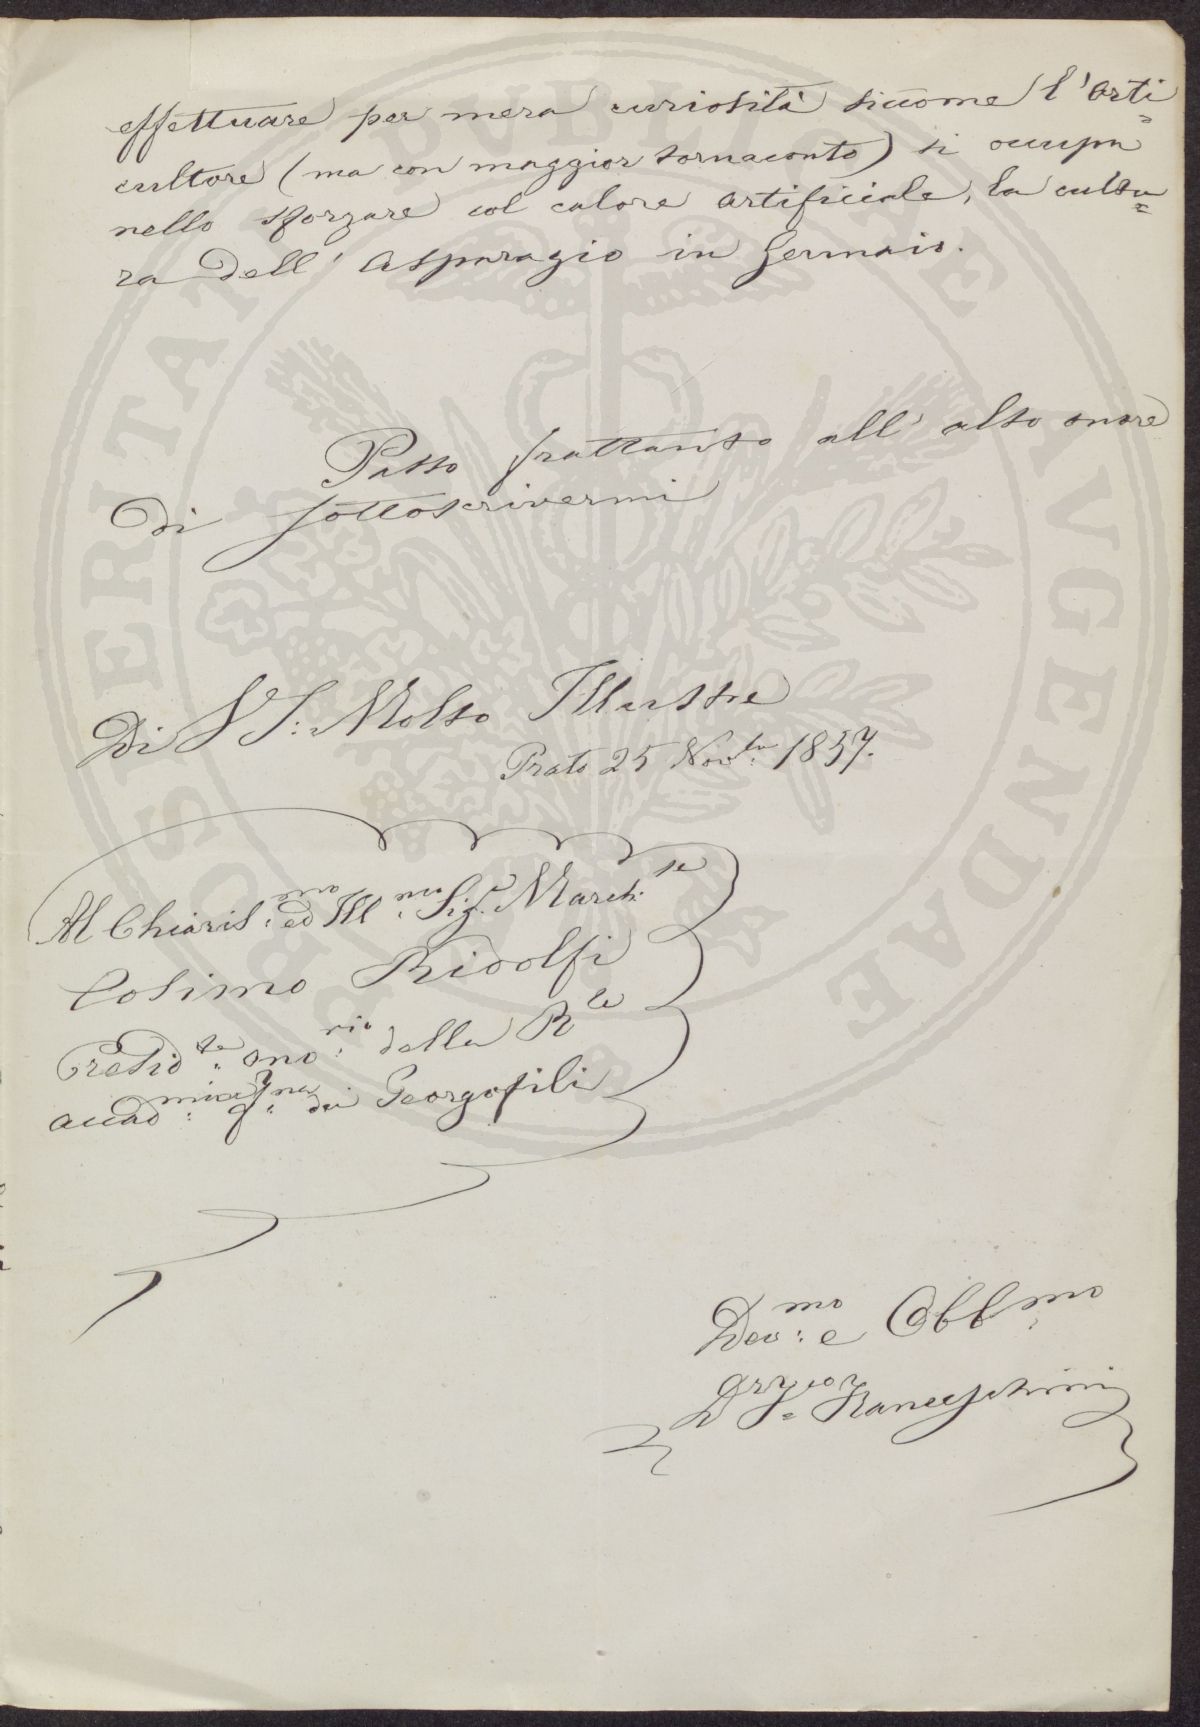 effettuare per mera curiosità siccome l'Orti=
cultore (ma con maggior tornaconto) si occupa
nello sforzare col calore artificiale, la cultu=
ra dell' Asparagio in Gennaio.
Passo frattanto all' alto onore
di sottoscrivermi
Di V S: Molto Illustre
Prato 25 Nov.bre 1857.
Al Chiaris:mo ed Ill:mo Sig.r March.se
Cosimo Ridolfi
Presid:te ono:rio della R.le
Accad:mia dei Georgofili
Dev:mo e Obb:mo
Franceschini
PROSPERITATI PVBLICAE AVGENDAE